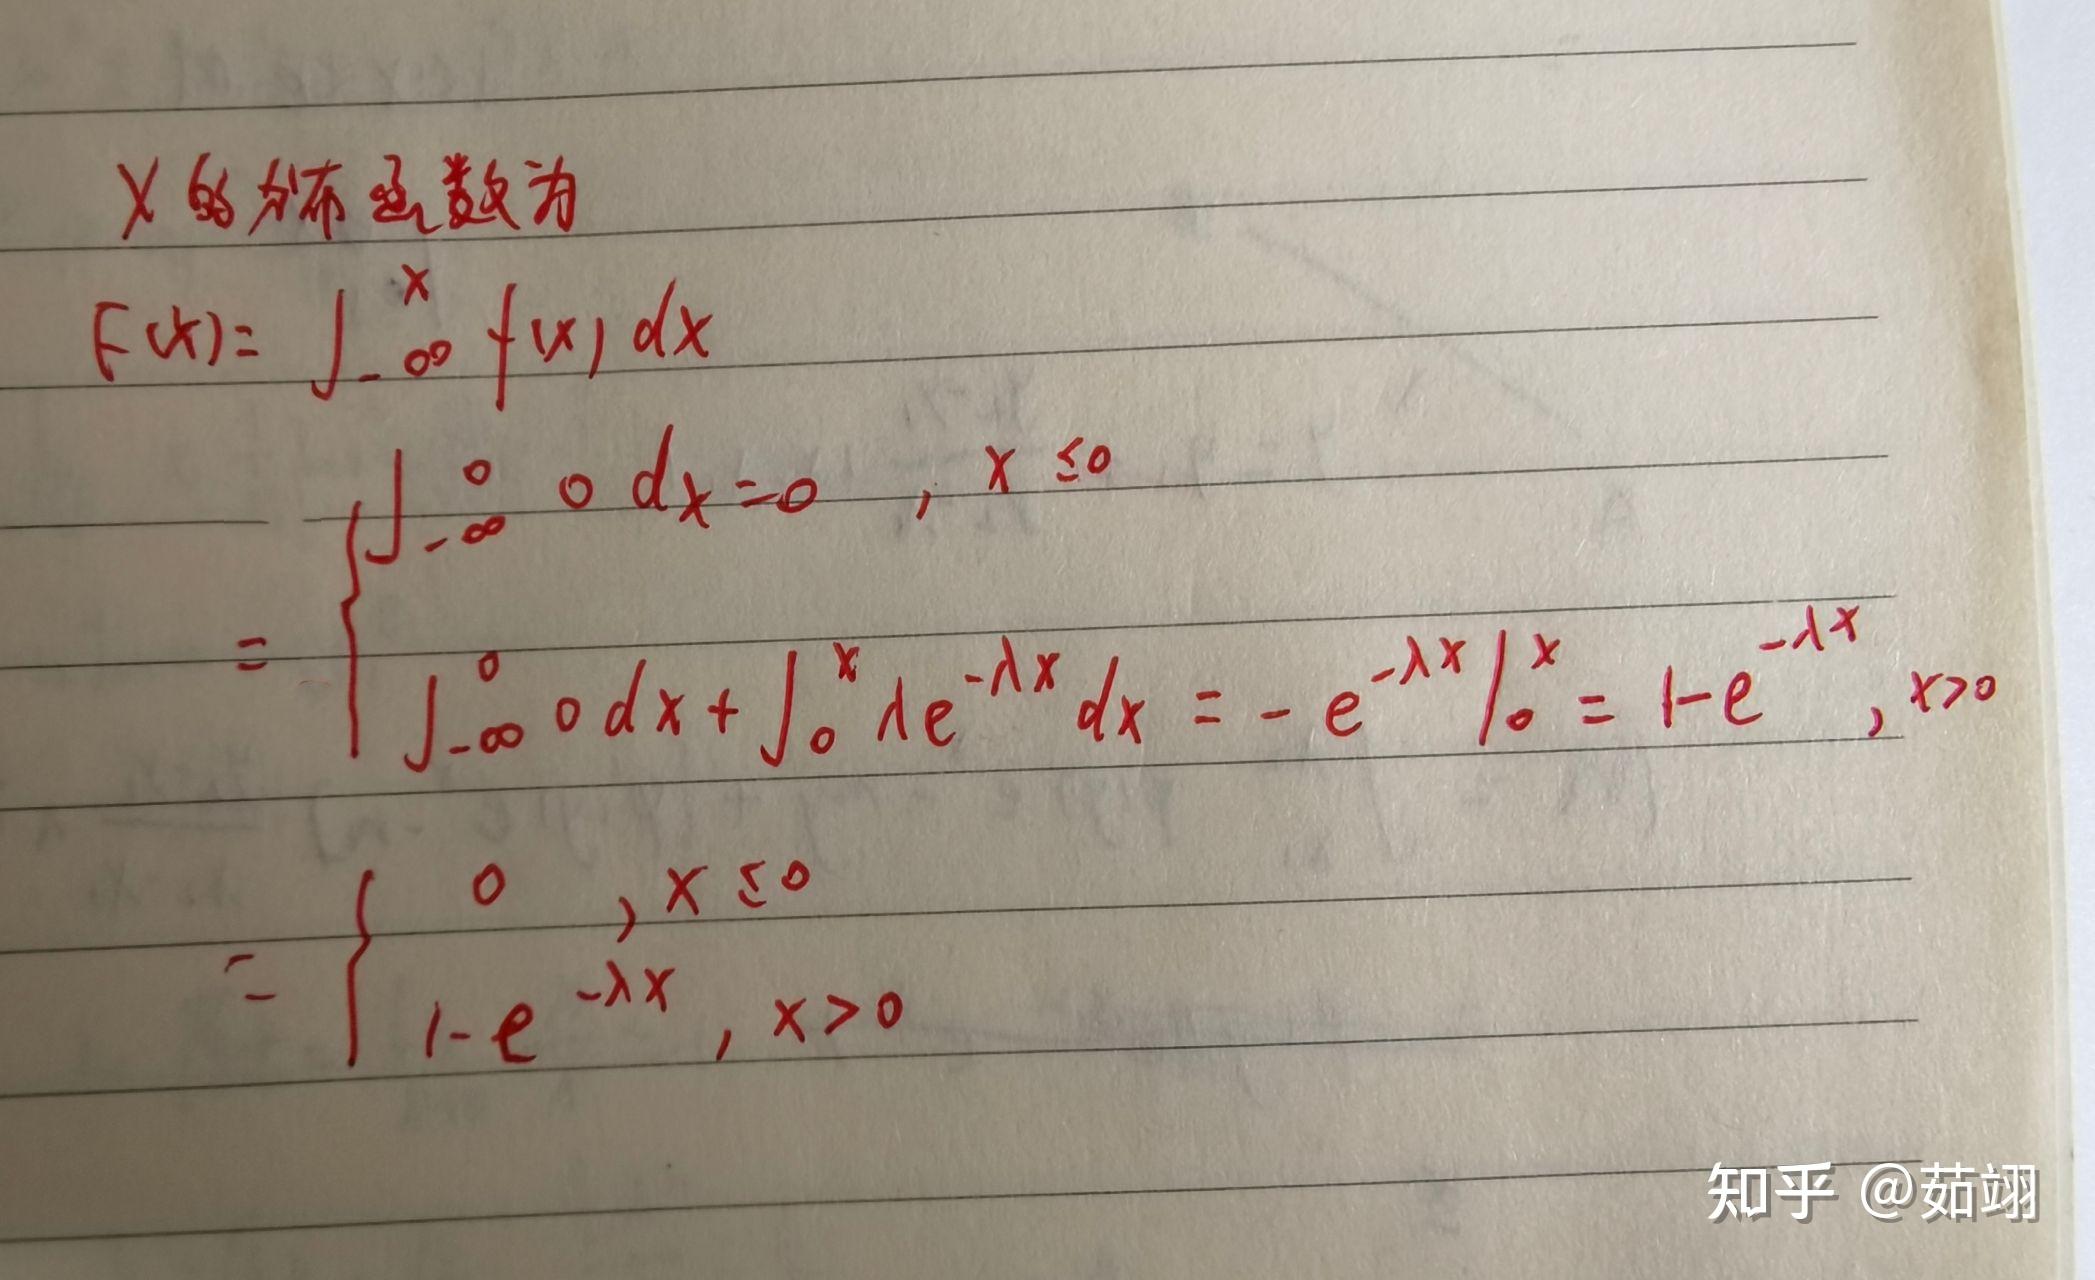 X的分布函数为
F(x)= ∫_{-∞}^{x} f(x) dx
= { ∫_{-∞}^{0} 0 dx=0 , x ≤0
∫_{-∞}^{0} 0 dx + ∫_{0}^{x} λe^{-λx} dx = -e^{-λx} |_{0}^{x} = 1-e^{-λx} , x>0
= { 0 , x ≤0
1-e^{-λx} , x>0
知乎 @茹翊